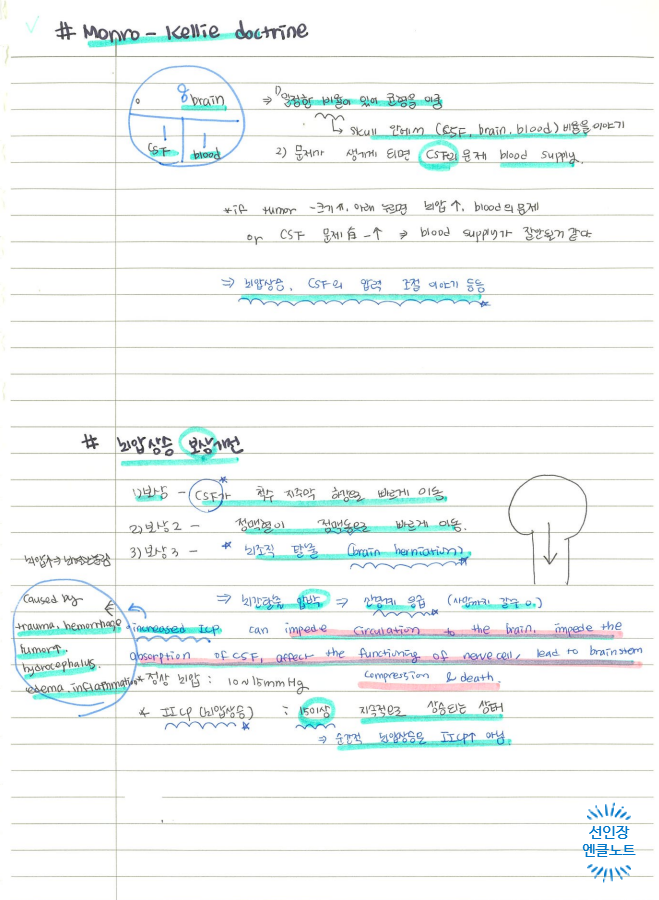 # Monro - Kellie doctrine
brain
CSF
blood
⇒ 1) 일정한 비율이 있어 균형을 이룸
↳ skull 안에서 (CSF, brain, blood) 비율을 이야기
2) 문제가 생기게 되면 CSF의 문제 blood supply.
*if tumor - 크기↑, 아래 누르면 뇌압↑, blood의 문제
or CSF 문제 - ↑ ⇒ blood supply가 잘안될거 같다
⇒ 뇌압상승, CSF의 압력 조절 이야기 등등
# 뇌압상승 보상기전
1) 보상 - CSF가 척수 지주막 하강으로 빠르게 이동.
2) 보상2 - 정맥혈이 정맥동으로 빠르게 이동.
3) 보상3 - * 뇌조직 탈출 (brain herniation)
⇒ 뇌간탈출 압박 ⇒ 신경계 응급
caused by
trauma, hemorrhage
tumor,
hydrocephalus,
edema, inflammation
• increased ICP can impede circulation to the brain, impede the
absorption of CSF, affect the functioning of nerve cell, lead to brainstem
compression & death.
* 정상 뇌압 : 10~15mmHg
* IICP (뇌압상승) : 15이상 지속적으로 상승되는 상태
⇒ 순간적 뇌압상승은 IICP 아님.
선인장
엔클노트